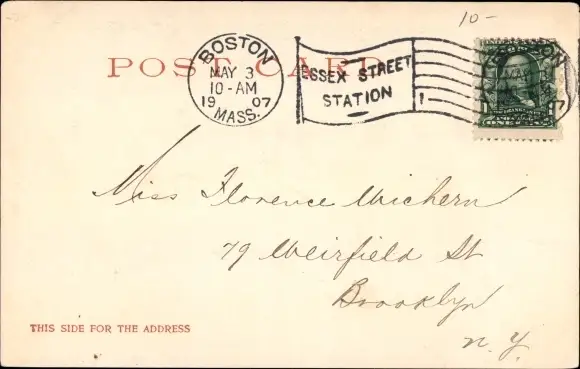 10-
POST CARD
BOSTON
MAY 3
10-AM
1907
MASS.
ESSEX STREET
STATION
1
Miss Florence Wichern
79 Weirfield St
Brooklyn
N.Y.
THIS SIDE FOR THE ADDRESS